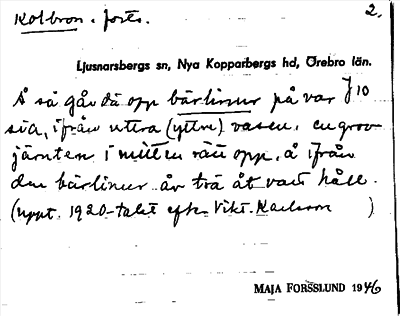 Kolbron. forts. 2.
Ljusnarsbergs sn, Nya Kopparbergs hd, Örebro län.
Å så går då opp bärlinur på var J 10
sia, ifrån uttra (yttre) vasen, en grov
järnten i mitten rätt opp, å ifrån
den bärlinur åv två åt vart håll.
(uppt. 1920-talet efter Vikt. Karlsson )
MAJA FORSSLUND 1946